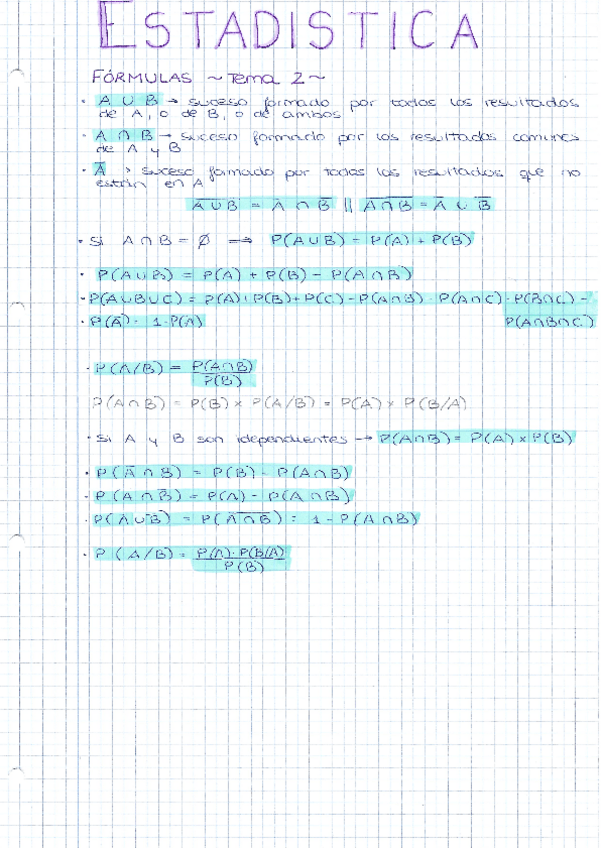 ESTADISTICA
FÓRMULAS ~ Tema 2 ~
· A ∪ B → suceso formado por todos los resultados
de A, o de B, o de ambos
· A ∩ B → suceso formado por los resultados comunes
de A y B
· A̅ → suceso formado por todos los resultados que no
están en A
A̅ ∪ B̅ = A̅ ∩ B̅ || A̅ ∩ B̅ = A̅ ∪ B̅
· Si A ∩ B = ∅ ⟹ P(A∪B) = P(A) + P(B)
· P(A∪B) = P(A) + P(B) - P(A∩B)
· P(A∪B∪C) = P(A) + P(B) + P(C) - P(A∩B) - P(A∩C) - P(B∩C) -
P(A∩B∩C)
· P(A̅) = 1 - P(A)
· P(A/B) = P(A∩B)
P(B)
P(A∩B) = P(B) × P(A/B) = P(A) × P(B/A)
· Si A y B son idependientes → P(A∩B) = P(A) × P(B)
· P(A̅ ∩ B) = P(B) - P(A∩B)
· P(A ∩ B̅) = P(A) - P(A∩B)
· P(A̅ ∪ B̅) = P(A̅∩̅B̅) = 1 - P(A∩B)
· P(A/B) = P(A) · P(B/A)
P(B)